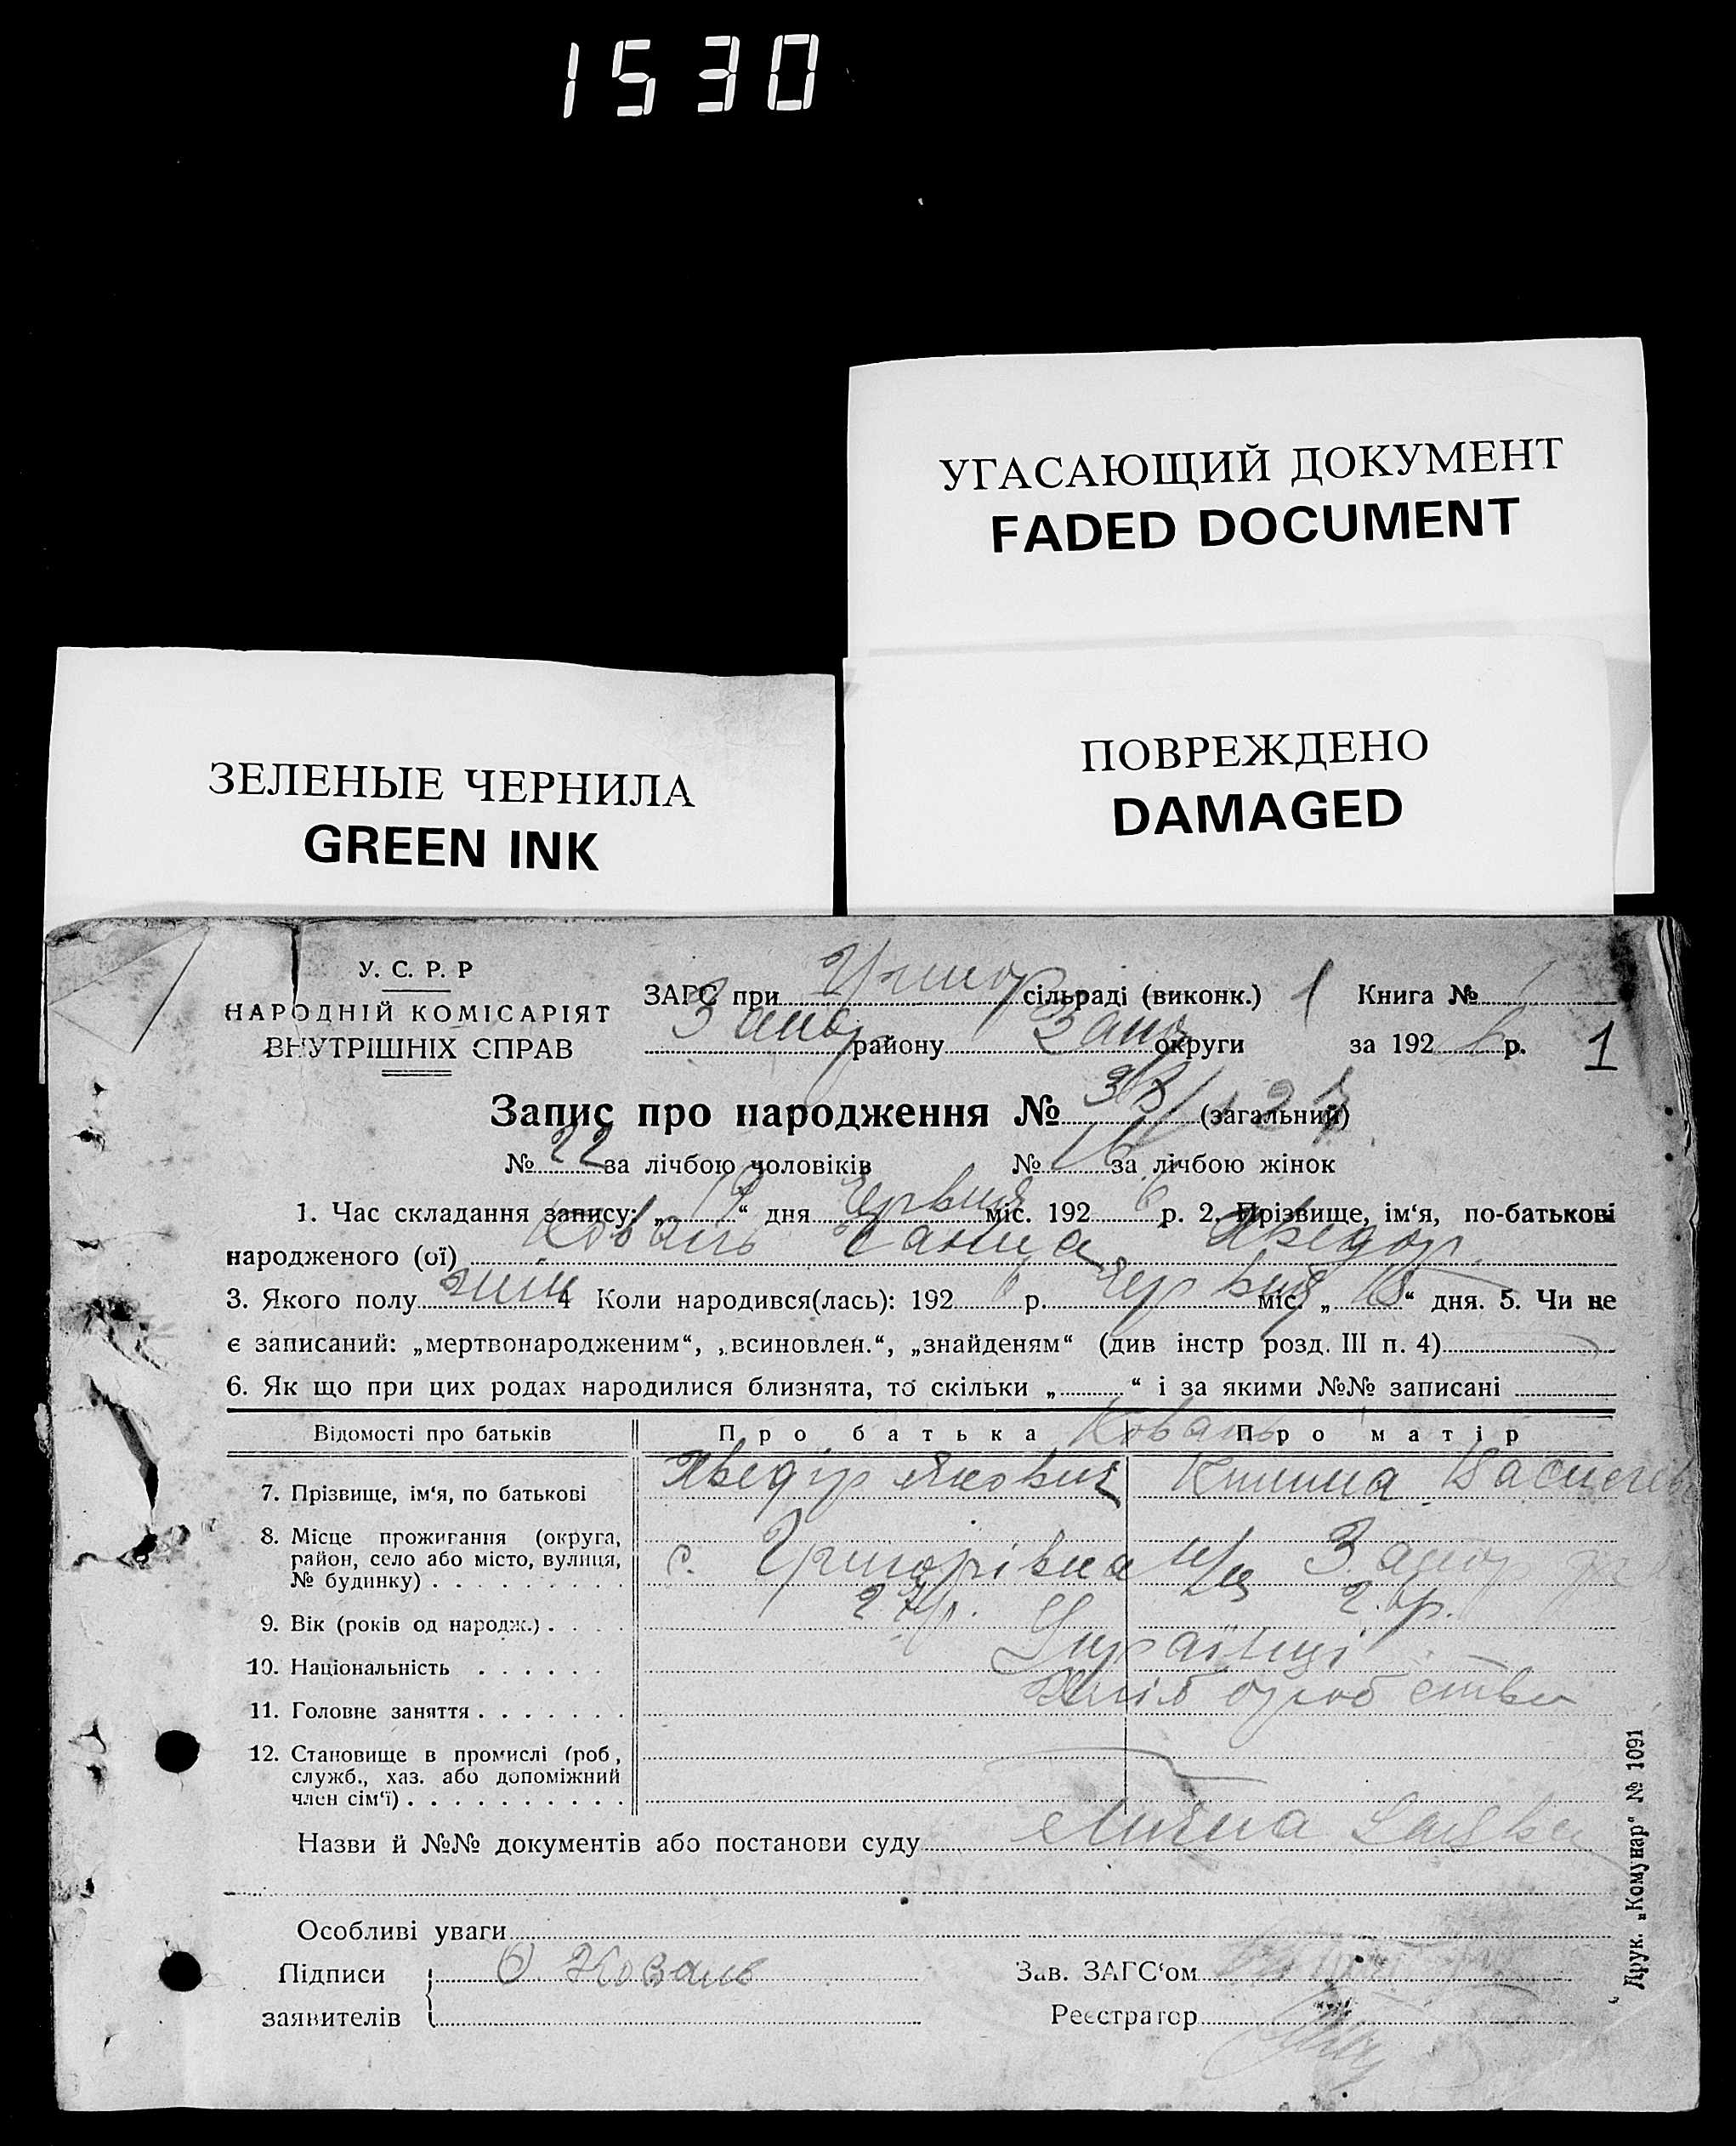 1530
УГАСАЮЩИЙ ДОКУМЕНТ
FADED DOCUMENT
ЗЕЛЕНЫЕ ЧЕРНИЛА
GREEN INK
ПОВРЕЖДЕНО
DAMAGED
У. С. Р. Р
НАРОДНІЙ КОМІСАРІЯТ
ВНУТРІШНІХ СПРАВ
ЗАГС при Григор сільраді (виконк.) 1 Книга №
Запор району Запор округи за 192 6 р. 1
Запис про народження № (загальний)
№ 22 за лічбою чоловіків № 16 за лічбою жінок
1. Час складання запису: „ 19 “ дня Червня міс. 192 6 р. 2. Прізвище, ім‘я, по-батькові
народженого (ої) Коваль Ганна Хведор.
3. Якого полу жин 4 Коли народився(лась): 192 6 р. Червня міс. „ 18 “ дня. 5. Чи не
є записаний: „мертвонародженим“, „всиновлен.“, „знайденям“ (див інстр розд. III п. 4)
6. Як що при цих родах народилися близнята, то скільки „ “ і за якими №№ записані
Відомості про батьків Про батька Коваль Про матір
7. Прізвище, ім‘я, по батькові Хведір Якович
8. Місце прожигання (округа,
район, село або місто, вулиця,
№ будинку) с. Григорівка Запор
9. Вік (років од народж.)
10. Національність Українці
11. Головне заняття Хліборобство
12. Становище в промислі (роб,
служб., хаз. або допоміжний
член сім‘ї)
Назви й №№ документів або постанови суду
Особливі уваги
Підписи Коваль Зав. ЗАГС‘ом
заявителів Реєстратор
Друк. „Комунар“ № 1091